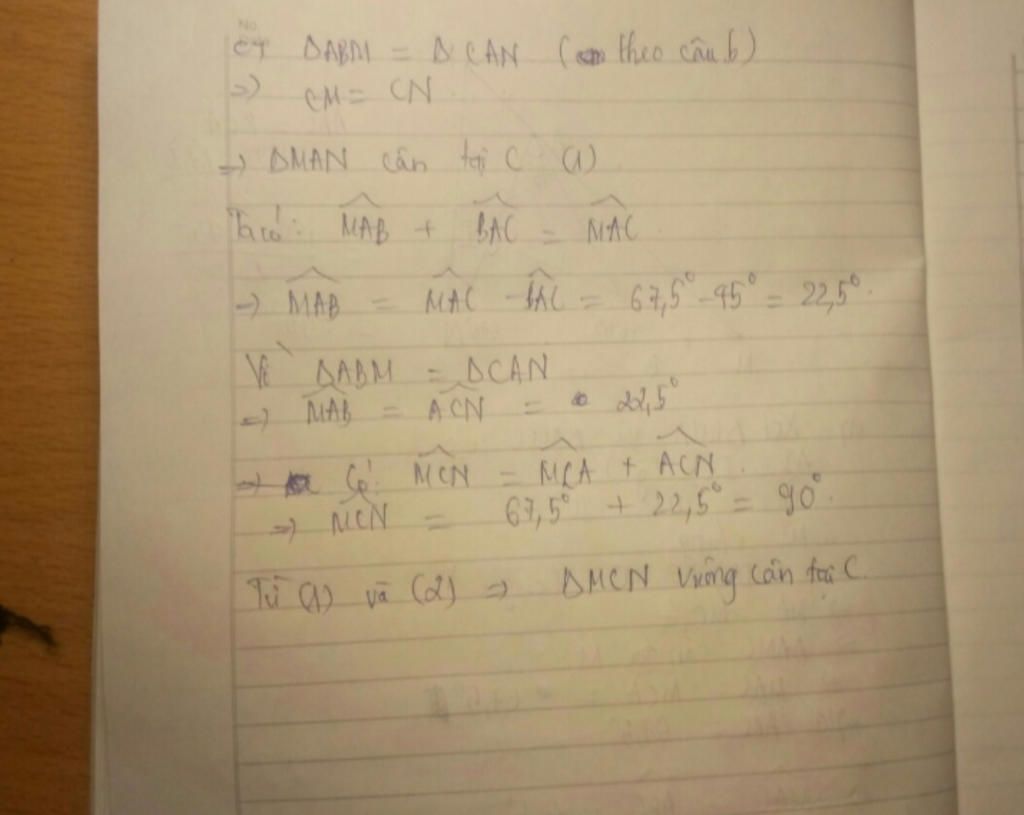 No.
c, ΔABM = ΔCAN ( theo câu b)
=> CM = CN.
=> ΔMAN cân tại C (1)
Ta có: MAB + BAC = MAC
=> MAB = MAC - BAC = 67,5° - 45° = 22,5°.
Vì ΔABM = ΔCAN
=> MAB = ACN = 22,5°
=> Có: MCN = MCA + ACN
=> MCN = 67,5° + 22,5° = 90°.
Từ (1) và (2) => ΔMCN vuông cân tại C.